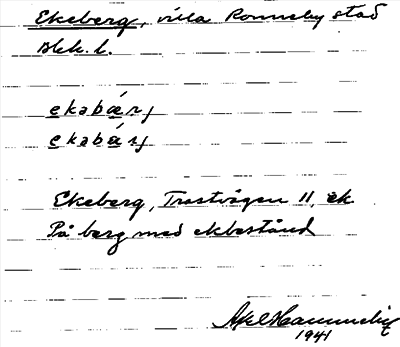 Ekeberg, villa Ronneby stad
Blek. l.
ekabær̩j
ekabárj
Ekeberg, Trastvägen 11, ek
På berg med ekbestånd
Axel
1941